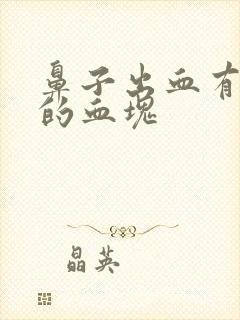 鼻子出血有
的血塊
晶英